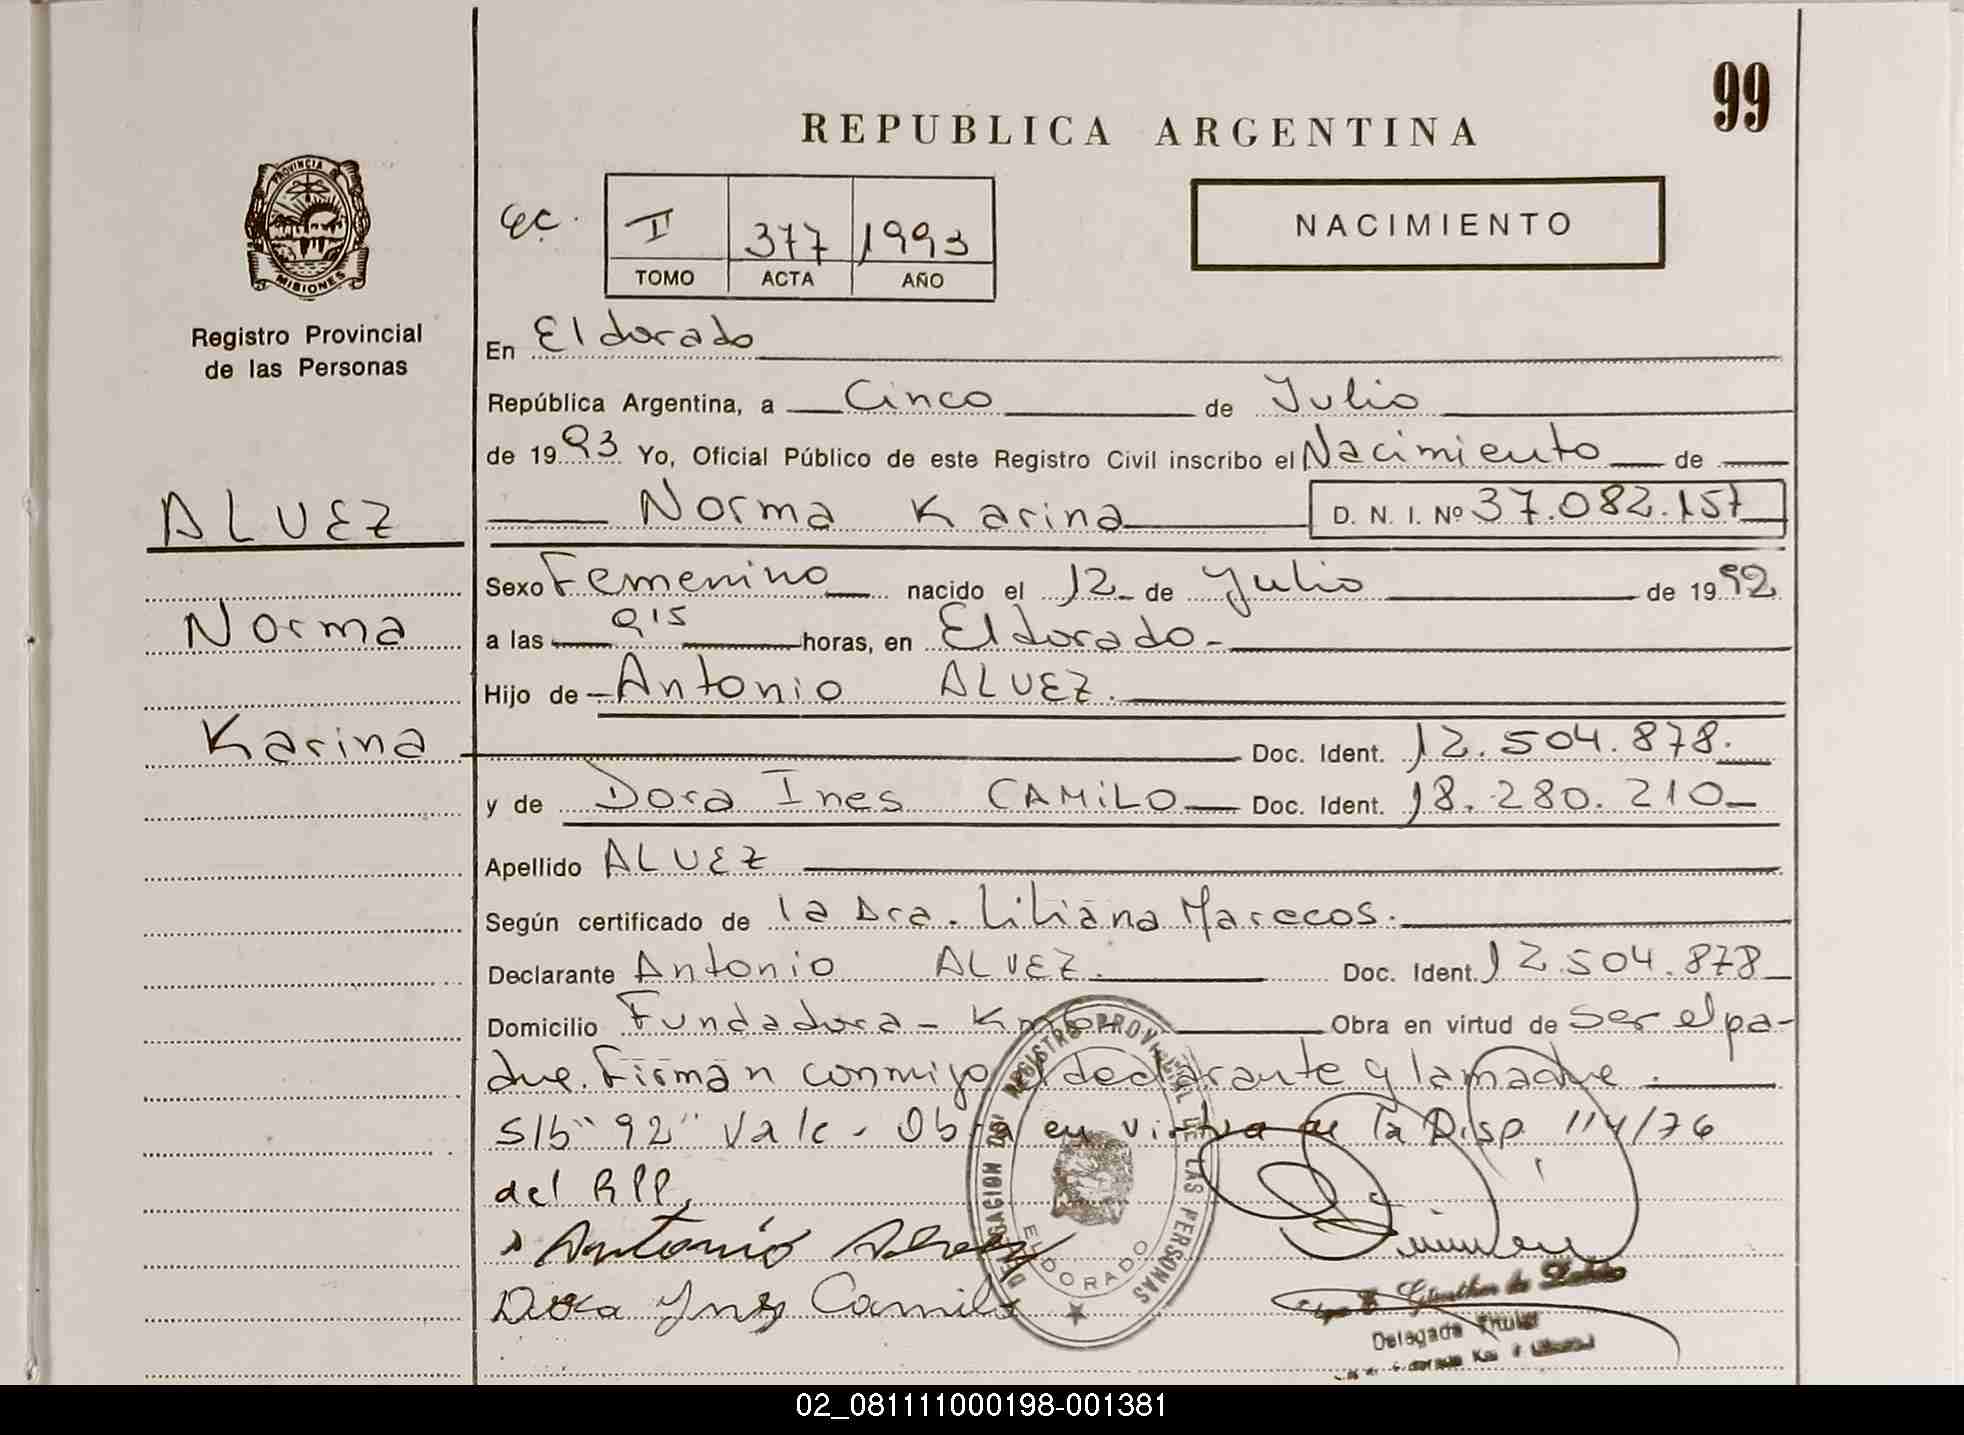 99
REPUBLICA ARGENTINA
PROVINCIA
MISIONES
Registro Provincial
de las Personas
I 377 1993
TOMO ACTA AÑO
NACIMIENTO
En Eldorado
República Argentina, a Cinco de Julio
de 1993 Yo, Oficial Público de este Registro Civil inscribo el Nacimiento de
Norma Karina D. N. I. Nº 37.082.157
ALVEZ
Norma
Karina
Sexo Femenino nacido el 12 de Julio de 1992
a las 0,15 horas, en Eldorado-
Hijo de Antonio ALVEZ.
Doc. Ident. 12.504.878.
y de Dora Ines CAMILO Doc. Ident. 18.280.210
Apellido ALVEZ
Según certificado de la Dra. Liliana Marecos.
Declarante Antonio ALVEZ. Doc. Ident. 12.504.878
Domicilio Fundadora - Km Obra en virtud de ser el pa-
dre. Firman conmigo el declarante y la madre.
S/b "92" Vale - Obra en virtud de la Disp 114/76
del RPP.
Antonio
Dora Ynes Camilo
REGISTRO PROVINCIAL DE LAS PERSONAS
ELDORADO
Delegada Titular
02_081111000198-001381